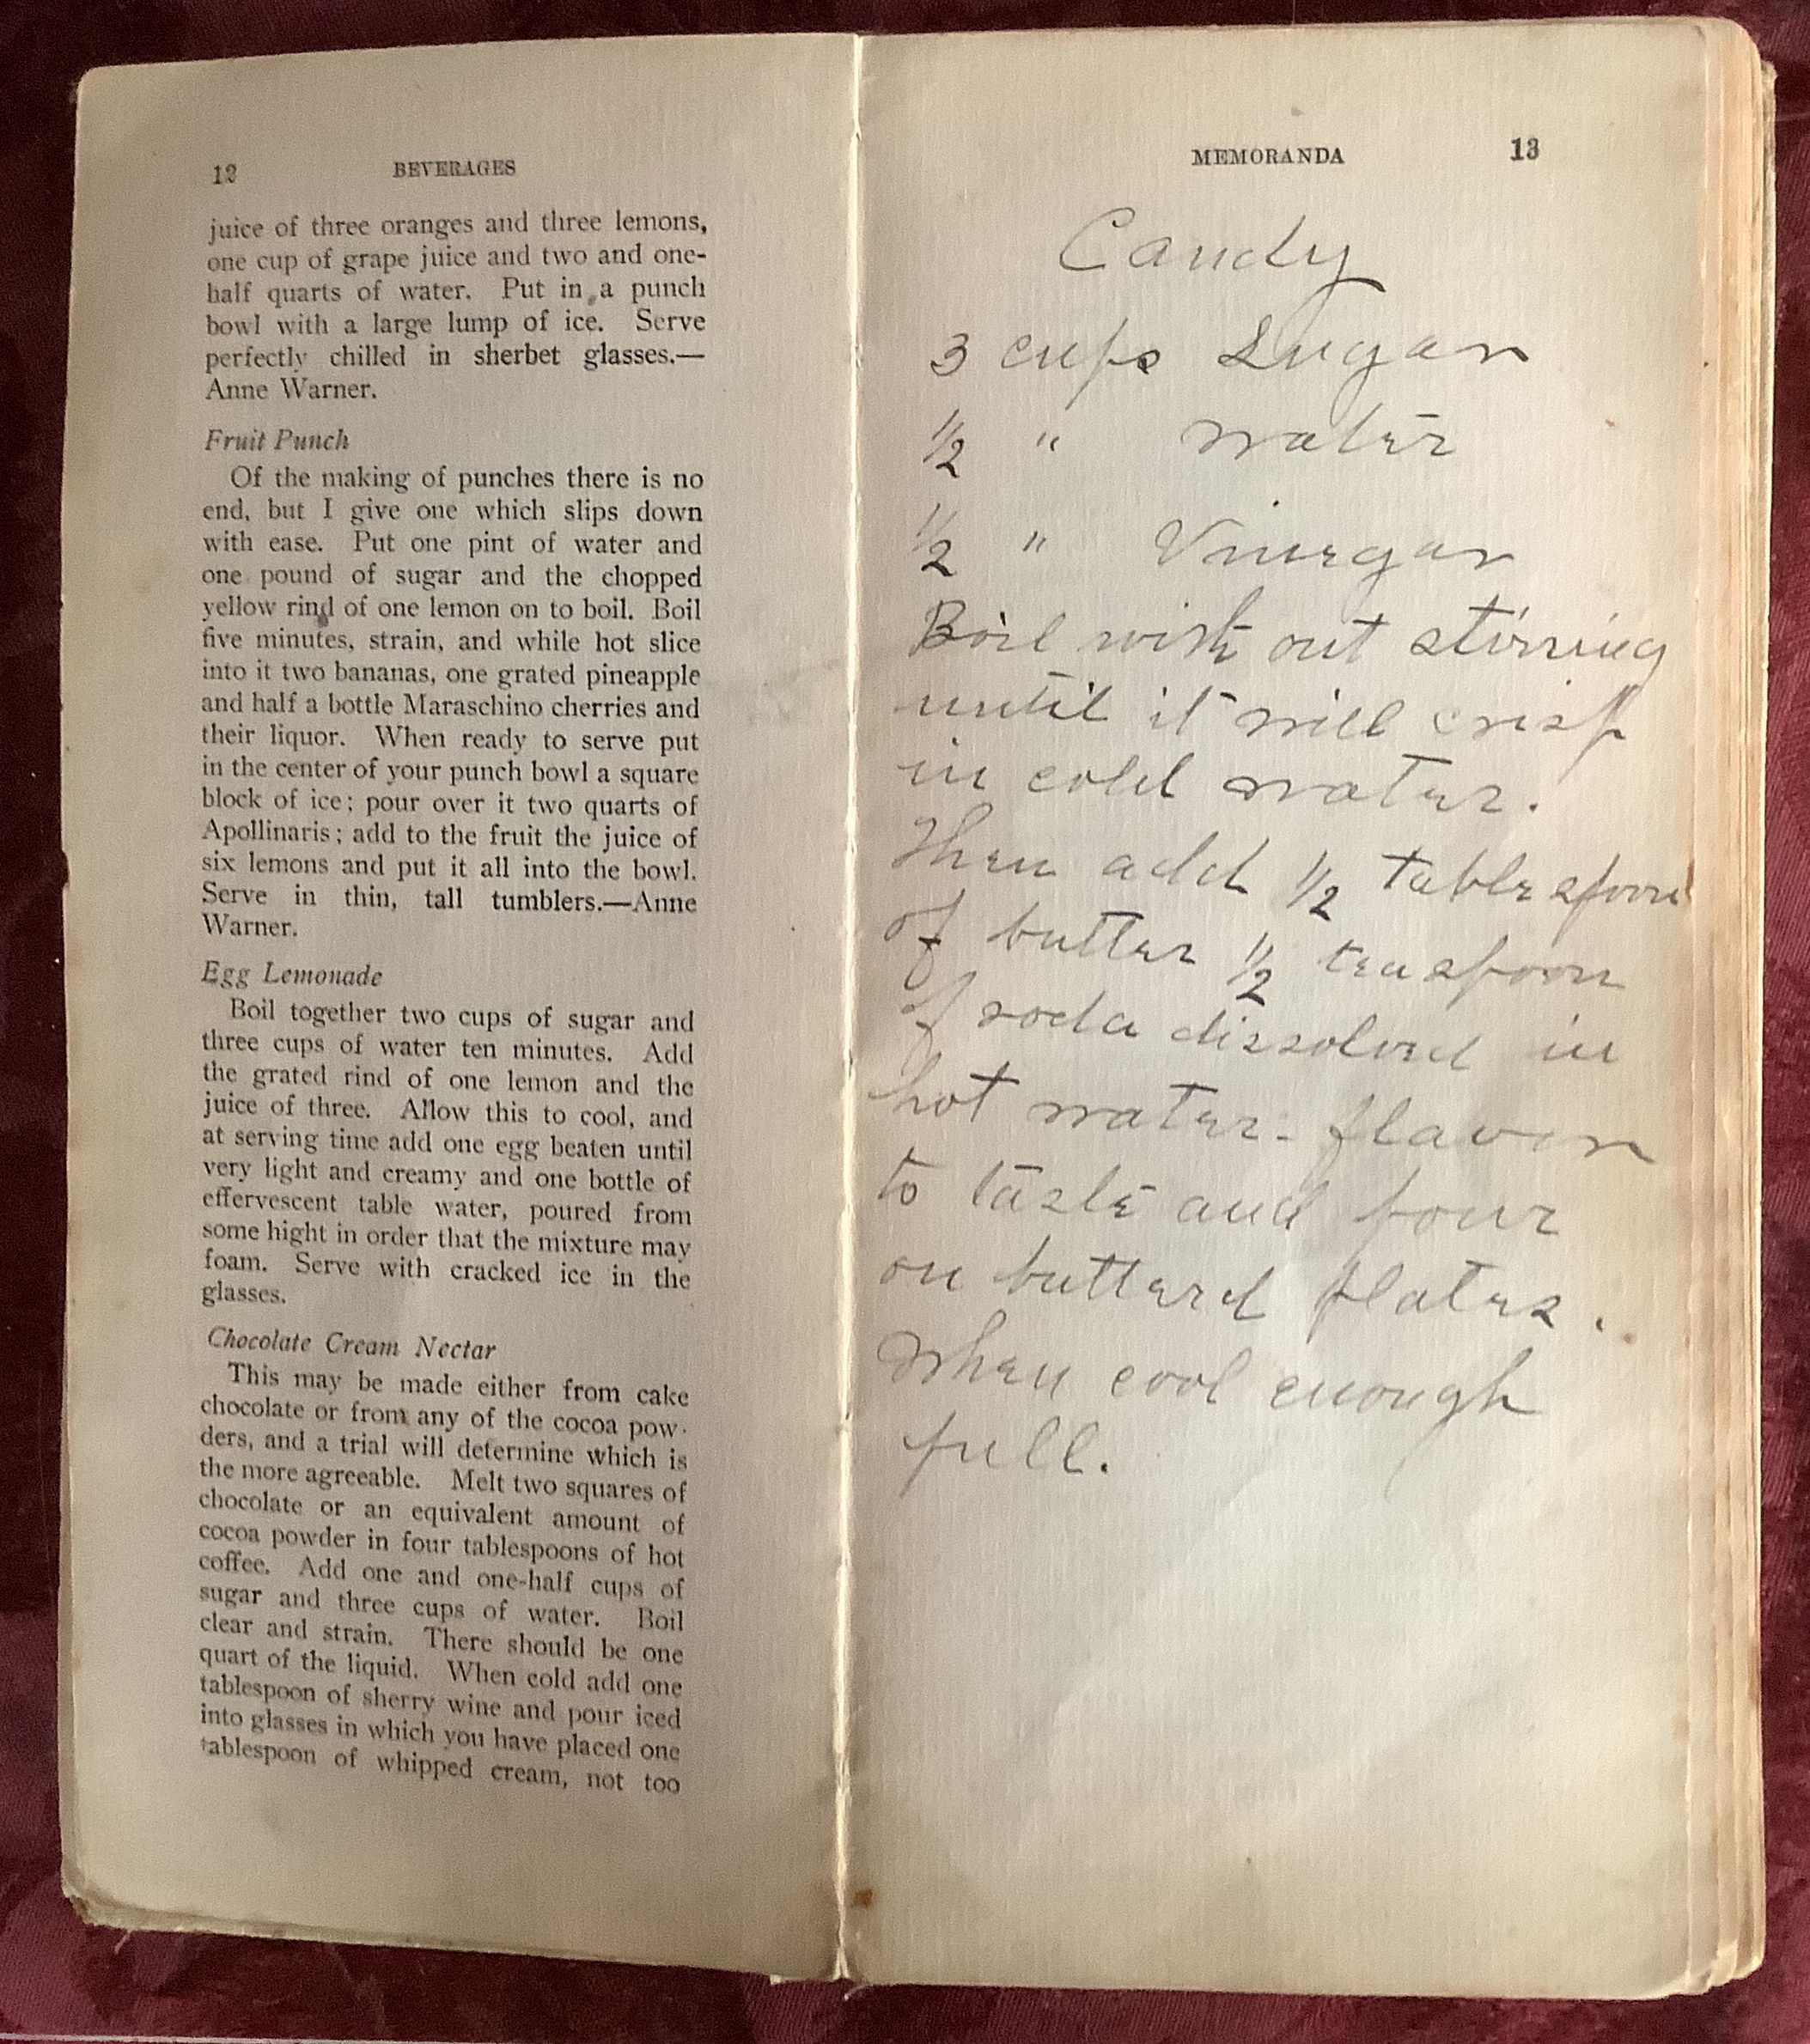 12 BEVERAGES
juice of three oranges and three lemons,
one cup of grape juice and two and one-
half quarts of water. Put in a punch
bowl with a large lump of ice. Serve
perfectly chilled in sherbet glasses.—
Anne Warner.
Fruit Punch
Of the making of punches there is no
end, but I give one which slips down
with ease. Put one pint of water and
one pound of sugar and the chopped
yellow rind of one lemon on to boil. Boil
five minutes, strain, and while hot slice
into it two bananas, one grated pineapple
and half a bottle Maraschino cherries and
their liquor. When ready to serve put
in the center of your punch bowl a square
block of ice; pour over it two quarts of
Apollinaris; add to the fruit the juice of
six lemons and put it all into the bowl.
Serve in thin, tall tumblers.—Anne
Warner.
Egg Lemonade
Boil together two cups of sugar and
three cups of water ten minutes. Add
the grated rind of one lemon and the
juice of three. Allow this to cool, and
at serving time add one egg beaten until
very light and creamy and one bottle of
effervescent table water, poured from
some hight in order that the mixture may
foam. Serve with cracked ice in the
glasses.
Chocolate Cream Nectar
This may be made either from cake
chocolate or from any of the cocoa pow-
ders, and a trial will determine which is
the more agreeable. Melt two squares of
chocolate or an equivalent amount of
cocoa powder in four tablespoons of hot
coffee. Add one and one-half cups of
sugar and three cups of water. Boil
clear and strain. There should be one
quart of the liquid. When cold add one
tablespoon of sherry wine and pour iced
into glasses in which you have placed one
tablespoon of whipped cream, not too
MEMORANDA 13
Candy
3 cups Sugar
1/2 " water
1/2 " Vinegar
Boil with out stirring
until it will crisp
in cold water.
Then add 1/2 tablespoon
of butter 1/2 teaspoon
of soda dissolved in
hot water - flavor
to taste and pour
on buttered plates.
When cool enough
pull.